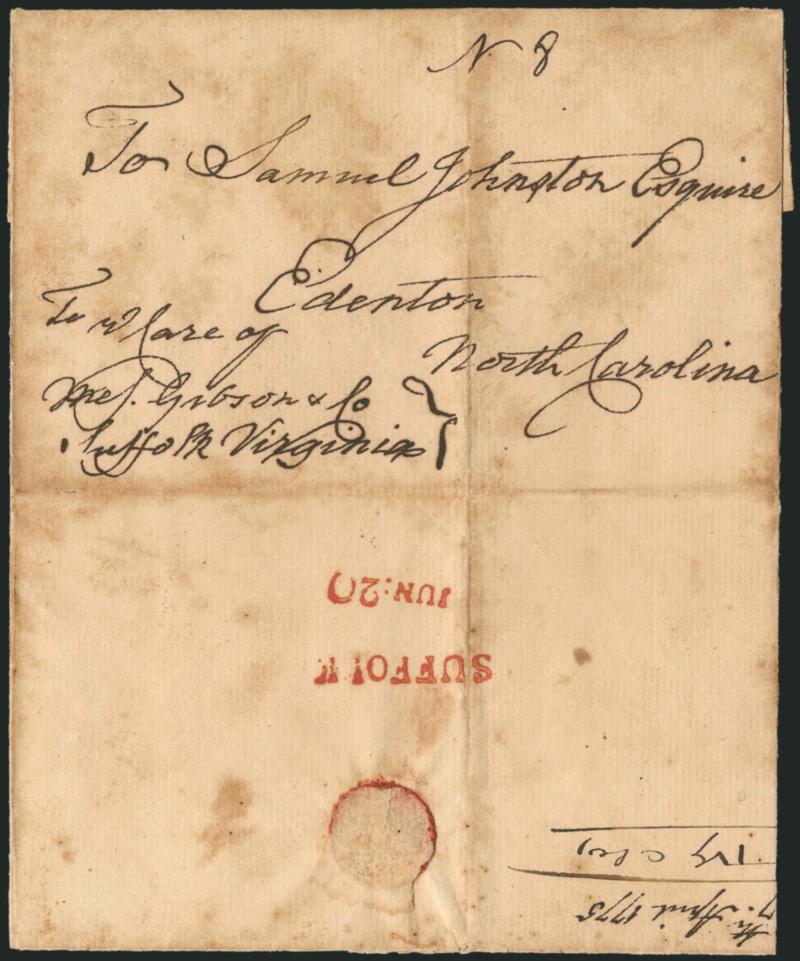 N 8
To Samuel Johnston Esquire
Edenton
North Carolina
To Care of
Gibson & Co
Suffolk Virginia
JUN:20
SUFFOLK
April 1775